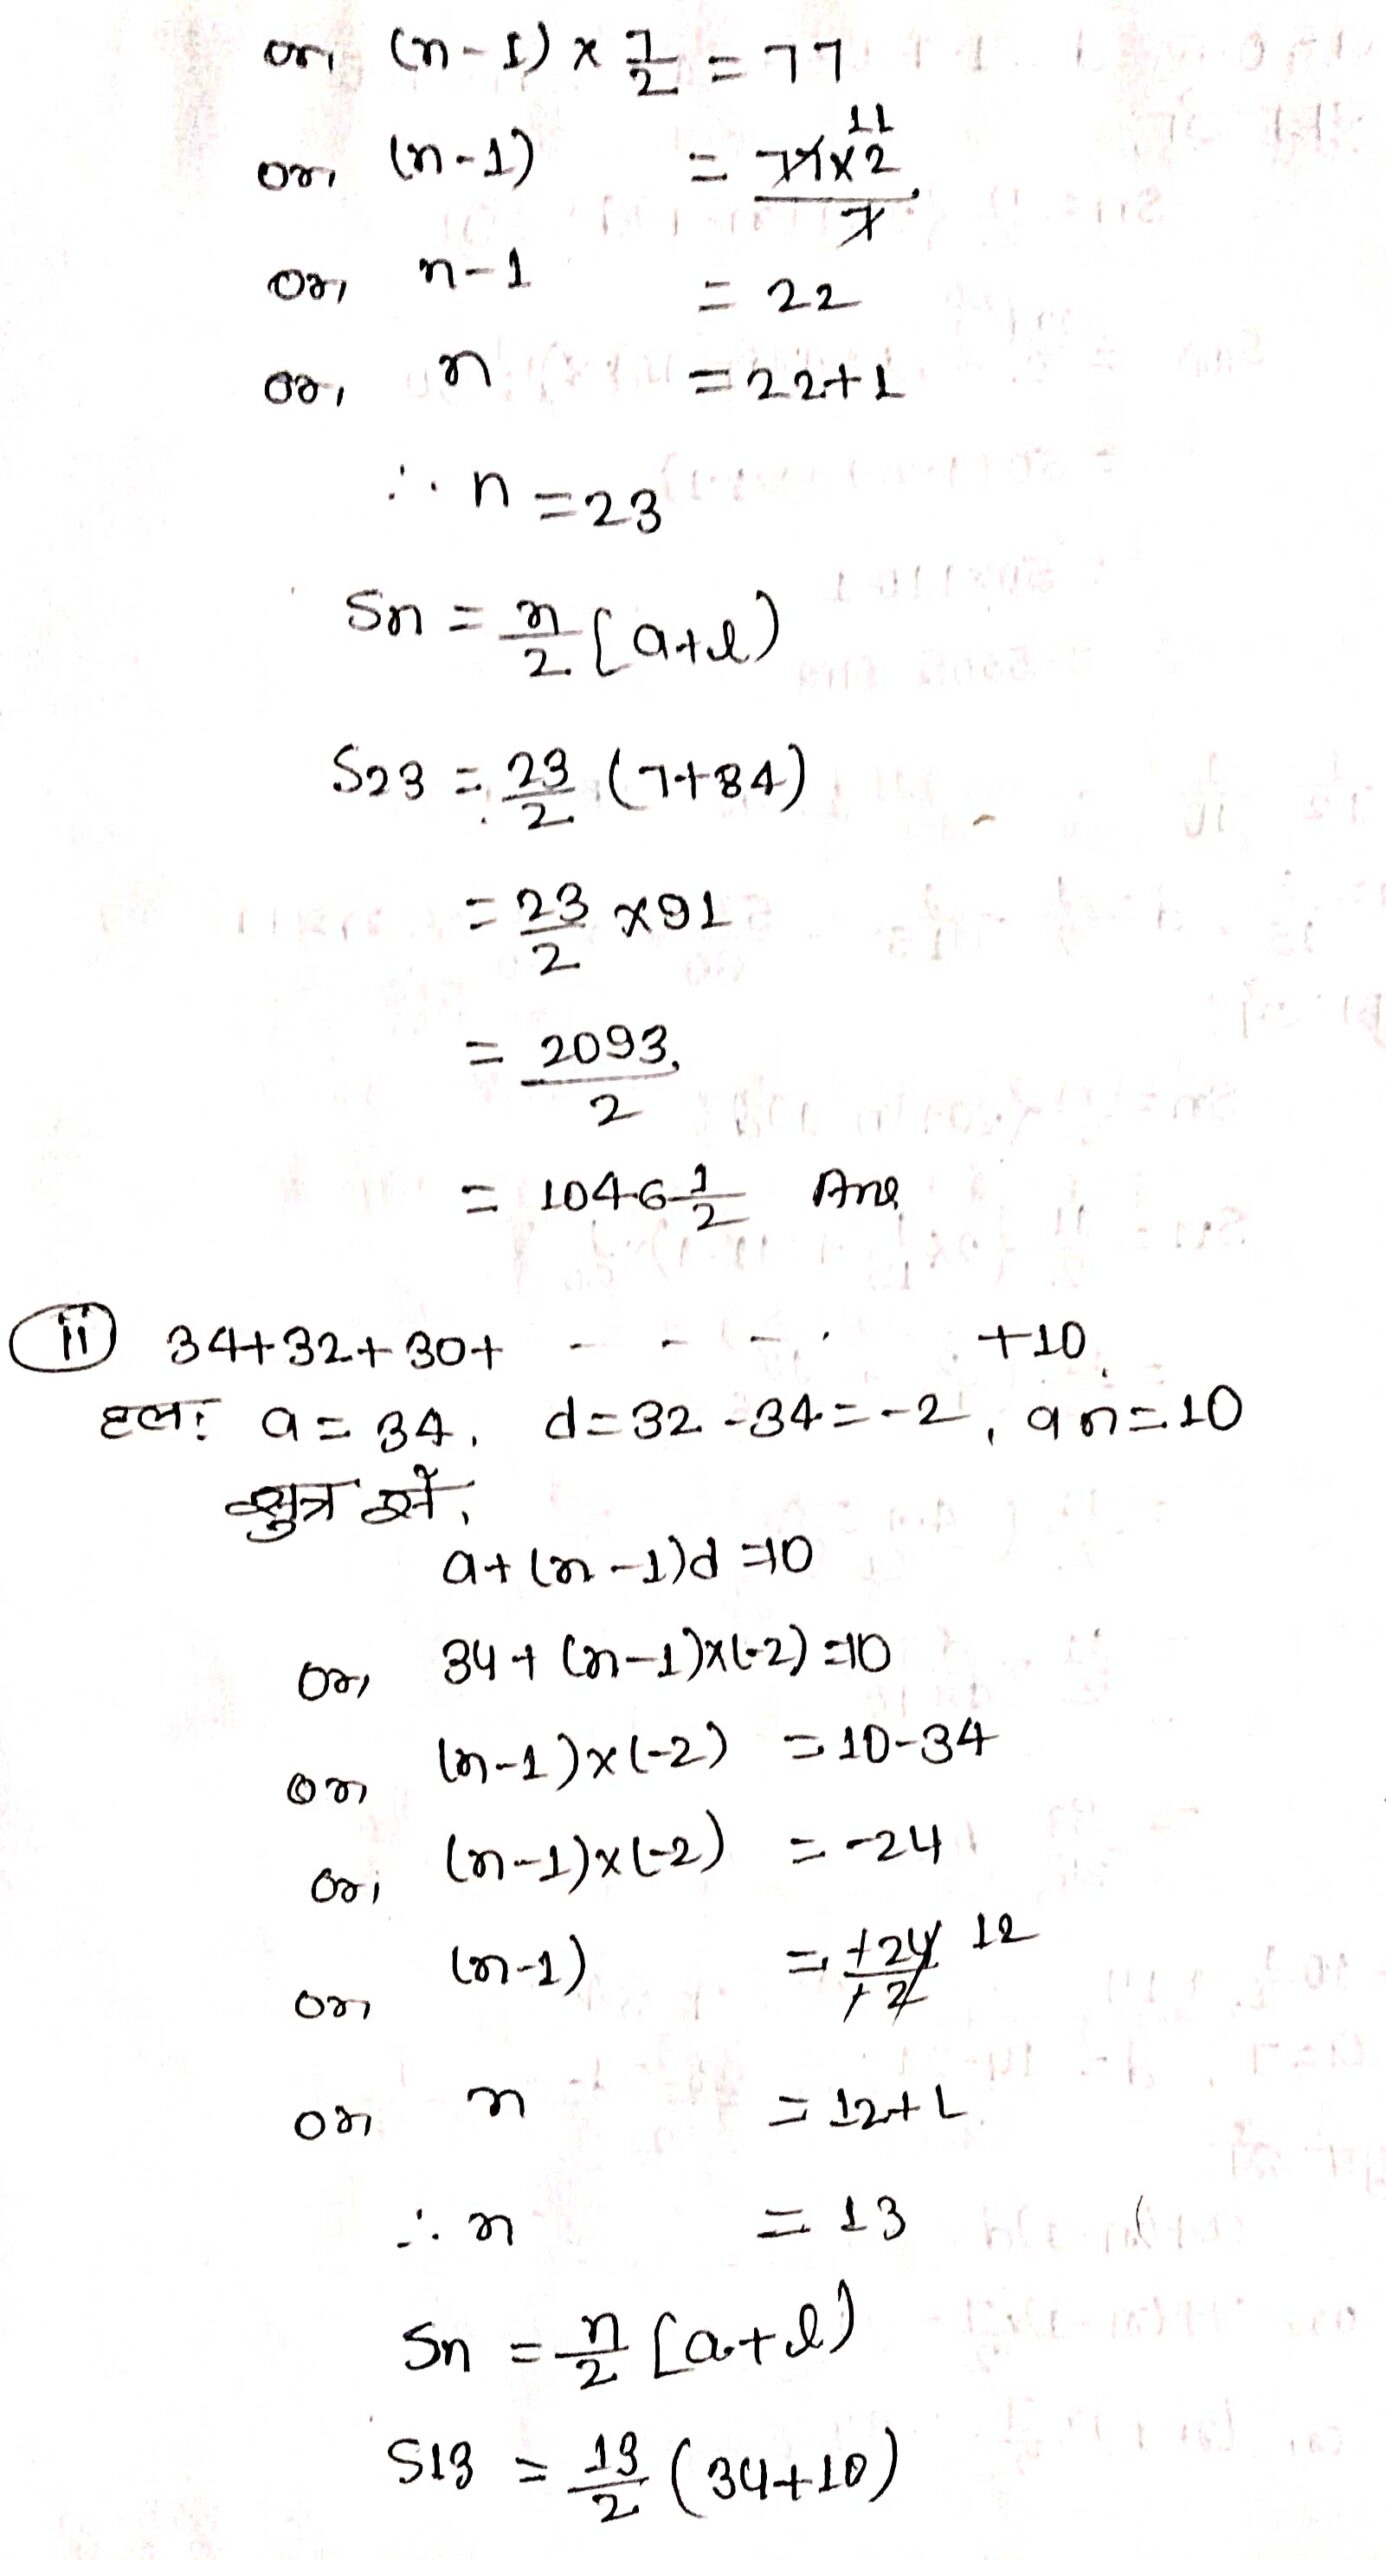 or, (n-1) × 7/2 = 77
or, (n-1) = 77×2/7 11
or, n-1 = 22
or, n = 22+1
∴ n = 23
Sn = n/2 [a+l)
S23 = 23/2 (7+84)
= 23/2 ×91
= 2093/2
= 1046 1/2 Ans
(ii) 34+32+30+ - - - . +10
हल: a = 34, d=32-34=-2, an=10
सुत्र से,
a+(n-1)d =10
or, 34+(n-1)×(-2) =10
or, (n-1)×(-2) = 10-34
or, (n-1)×(-2) = -24
or, (n-1) = +24/+2 12
or, n = 12+1
∴ n = 13
Sn = n/2 [a+l)
S13 = 13/2 (34+10)